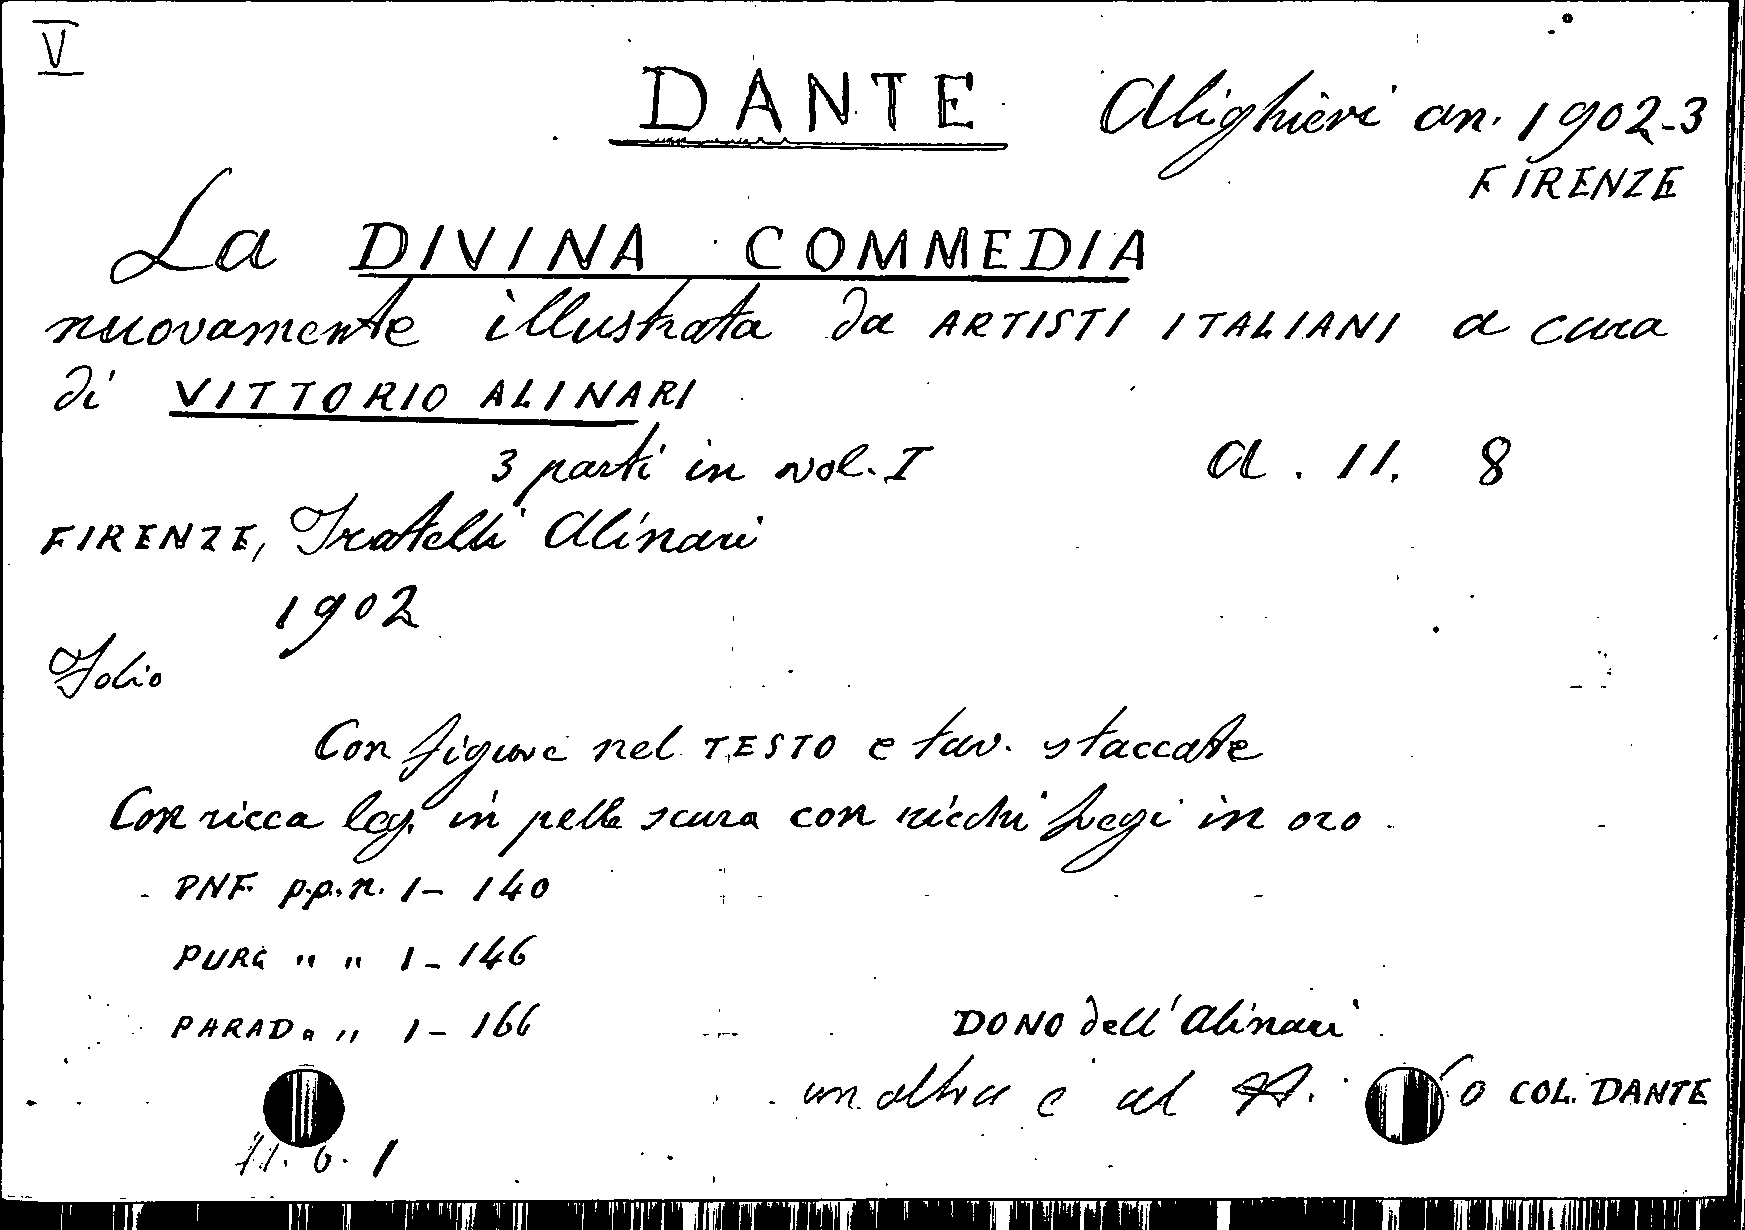 V
DANTE Alighieri an. 1902-3
FIRENZE
La DIVINA COMMEDIA
nuovamente illustrata da ARTISTI ITALIANI a cura
di VITTORIO ALINARI
3 parti in vol. I a. 11. 8
FIRENZE, Fratelli Alinari
1902
Folio
Con figure nel TESTO e tav. staccate
Con ricca leg. in pelle scura con ricchi fregi in oro
INF. p.p.n. 1- 140
PURG " " 1- 146
PARAD. " " 1- 166
DONO dell'Alinari
un altra è al A. 60 COL. DANTE
11. 6. 1